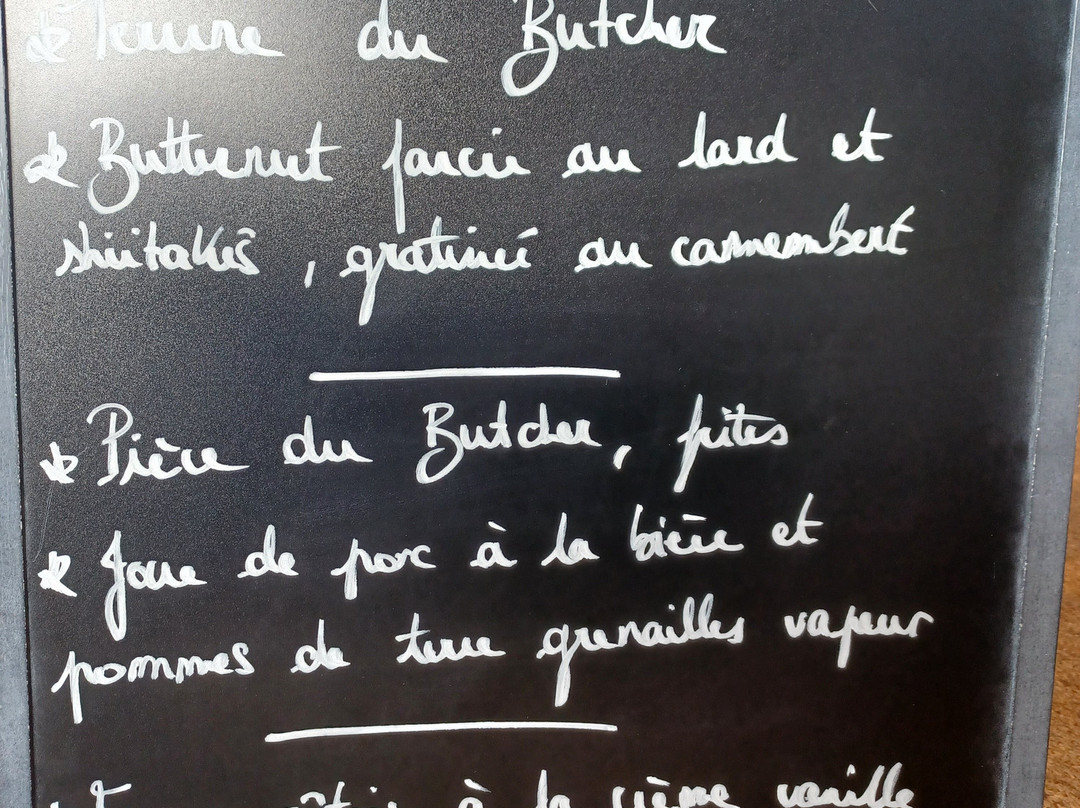 * Terrine du Butcher
* Butternut farcie au lard et
shiitakés, gratiné au camembert
* Pièce du Butcher, frites
* Joue de porc à la bière et
pommes de terre grenailles vapeur
à la crème vanille